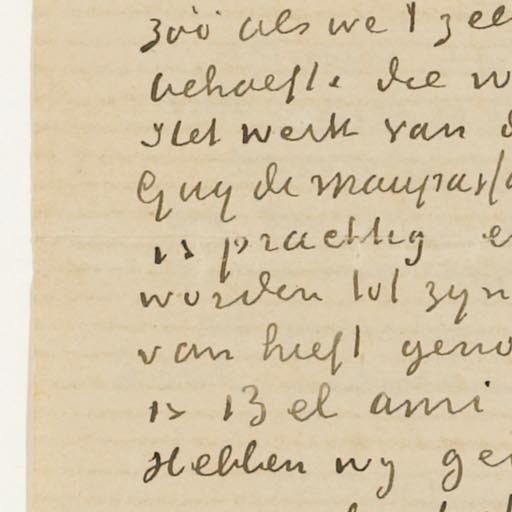 zoo als we 't zel
behoefte die w
Het werk van d
Guy de Maupass
is prachtig e
worden tot zyn
van heeft geno
is Bel ami
Hebben wy ge